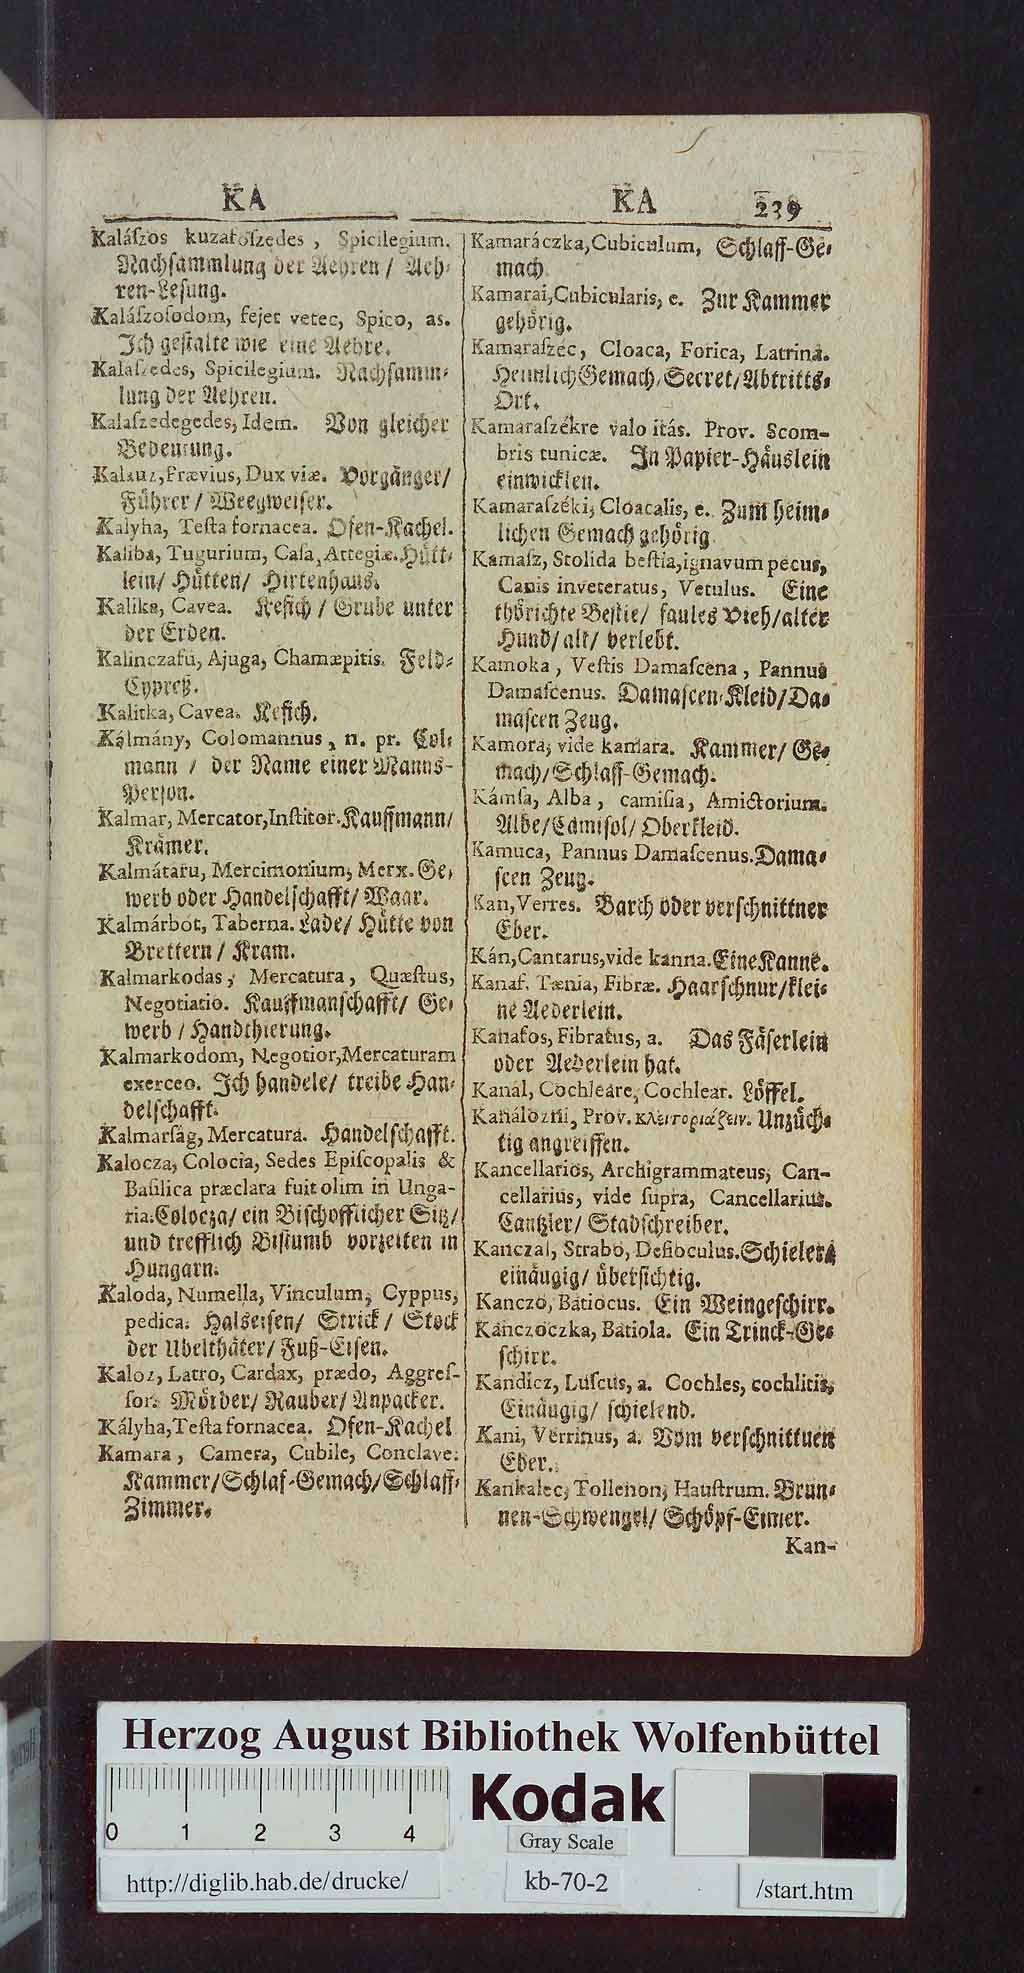 KA
KA 239
Kalászos kuzatoſzedes, Spicilegium.
Nachsammlung der Aehren / Aeh-
ren-Lesung.
Kalászosodom, fejet vetec, Spico, as.
Ich gestalte wie eine Aehre.
Kalaszedes, Spicilegium. Nachsamm-
lung der Aehren.
Kalaszedegedes, Idem. Von gleicher
Bedeutung.
Kalauz, Prævius, Dux viæ. Vorgänger/
Führer / Weegweiser.
Kalyha, Testa fornacea. Ofen-Kachel.
Kaliba, Tugurium, Casa, Attegiæ. Hütt-
lein/ Hütten/ Hirtenhaus.
Kalika, Cavea. Kefich / Grube unter
der Erden.
Kalinczafü, Ajuga, Chamæpitis. Feld-
Cypreß.
Kalitka, Cavea. Kefich.
Kálmány, Colomannus, n. pr. Col-
mann / der Name einer Manns-
Person.
Kalmar, Mercator, Institor. Kauffmann/
Krämer.
Kalmátaru, Mercimonium, Merx. Ge-
werb oder Handelschafft/ Waar.
Kalmárbot, Taberna. Lade/ Hütte von
Brettern / Kram.
Kalmarkodas, Mercatura, Quæstus,
Negotiatio. Kauffmanschafft/ Ge-
werb / Handthierung.
Kalmarkodom, Negotior, Mercaturam
exerceo. Ich handele/ treibe Han-
delschafft.
Kalmarság, Mercatura. Handelschafft.
Kalocza, Colocia, Sedes Episcopalis &
Basilica præclara fuit olim in Unga-
ria. Colocza/ ein Bischofflicher Sitz/
und trefflich Bistumb vorzeiten in
Hungarn.
Kaloda, Numella, Vinculum, Cyppus,
pedica. Halseisen/ Strick / Stock
der Ubelthäter/ Fuß-Eisen.
Kaloz, Latro, Cardax, prædo, Aggres-
sor. Mörder/ Rauber/ Anpacker.
Kályha, Testa fornacea. Ofen-Kachel
Kamara, Camera, Cubile, Conclave.
Kammer/Schlaf-Gemach/Schlaff-
Zimmer.
Kamaráczka, Cubiculum, Schlaff-Ge-
mach
Kamarai, Cubicularis, e. Zur Kammer
gehörig.
Kamaraszéc, Cloaca, Forica, Latrina.
Heimlich Gemach, Secret/ Abtritts-
Ort.
Kamaraszékre valo itás. Prov. Scom-
bris tunicæ. In Papier-Häuslein
einwicklen.
Kamaraszéki, Cloacalis, e. Zum heim-
lichen Gemach gehörig
Kamasz, Stolida bestia, ignavum pecus,
Canis inveteratus, Vetulus. Eine
thörichte Bestie/ faules Vieh/ alter
Hund/ alt/ verlebt.
Kamoka, Vestis Damascena, Pannus
Damascenus. Damascen-Kleid/ Da-
mascen Zeug.
Kamora, vide kamara. Kammer/ Ge-
mach/ Schlaff-Gemach.
Kámsa, Alba, camisia, Amictorium.
Albe/ Camisol/ Oberkleid.
Kamuca, Pannus Damascenus. Dama-
scen Zeug.
Kan, Verres. Barch oder verschnittner
Eber.
Kán, Cantarus, vide kanna. Eine Kanne.
Kanaf. Tænia, Fibræ. Haarschnur/ klei-
ne Aederlein.
Kanafos, Fibratus, a. Das Fäserlein
oder Aederlein hat.
Kanál, Cochleare, Cochlear. Löffel.
Kanálozni, Prov. κλειτοριάζειν. Unzüch-
tig angreiffen.
Kancellarios, Archigrammateus, Can-
cellarius, vide supra, Cancellarius.
Cantzler/ Stadschreiber.
Kanczal, Strabo, Desioculus. Schieler/
einäugig/ übersichtig.
Kanczo, Batiocus. Ein Weingeschirr.
Kanczoczka, Batiola. Ein Trinck-Ge-
schirr.
Kandicz, Luscus, a. Cochles, cochlitis,
Einäugig/ schielend.
Kani, Verrinus, a. Vom verschnittuen
Eber.
Kankalec, Tollenon, Haustrum. Brun-
nen-Schwengel/ Schöpf-Eimer.
Kan-
Herzog August Bibliothek Wolfenbüttel
0 1 2 3 4
Kodak
Gray Scale
http://diglib.hab.de/drucke/
kb-70-2
/start.htm